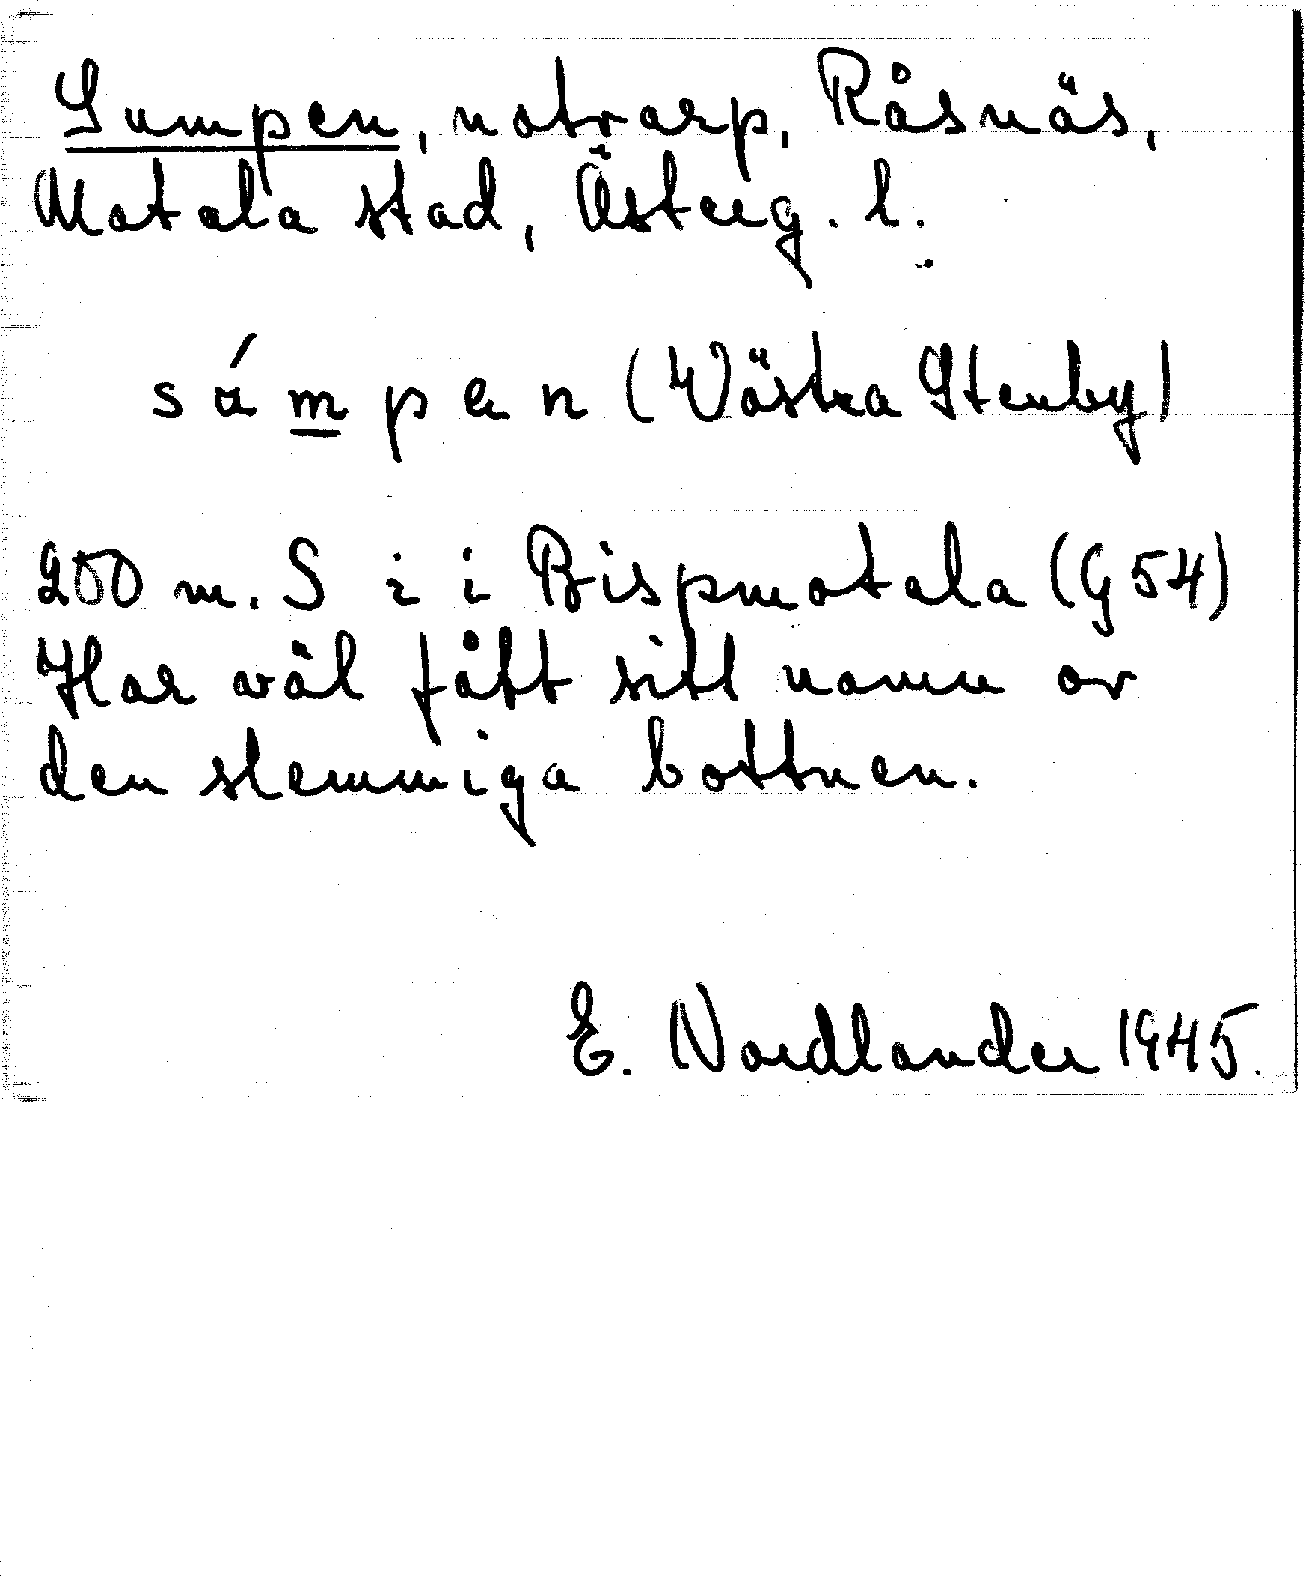 Sumpen, notvarp, Råsnäs,
Motala stad, Österg. l.
(Västra Stenby)
200 m. S i i Bispmotala (G 54)
Har väl fått sitt namn av
den slemmiga bottnen.
E. Nordlander 1945.